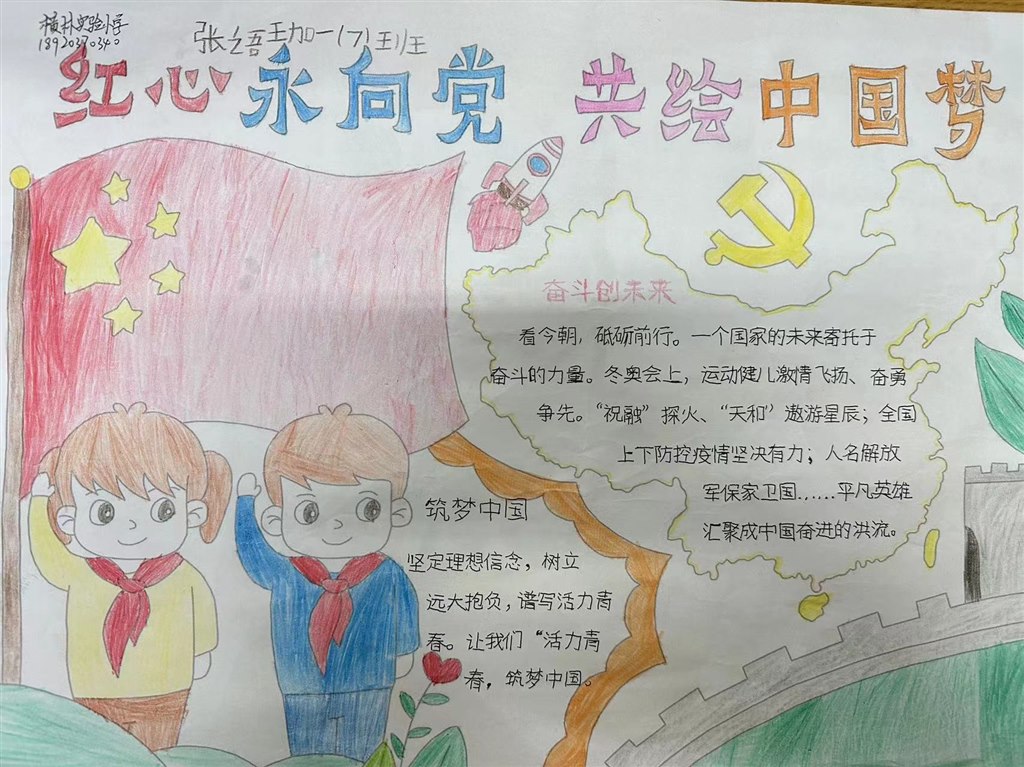 横林实验小学
18920370340
张语珈一(7)班
红心永向党 共绘中国梦
奋斗创未来
看今朝，砥砺前行。一个国家的未来寄托于
奋斗的力量。冬奥会上，运动健儿激情飞扬、奋勇
争先。“祝融”探火、“天和”遨游星辰；全国
上下防控疫情坚决有力；人名解放
军保家卫国……平凡英雄
汇聚成中国奋进的洪流。
筑梦中国
坚定理想信念，树立
远大抱负，谱写活力青
春。让我们“活力青
春，筑梦中国。